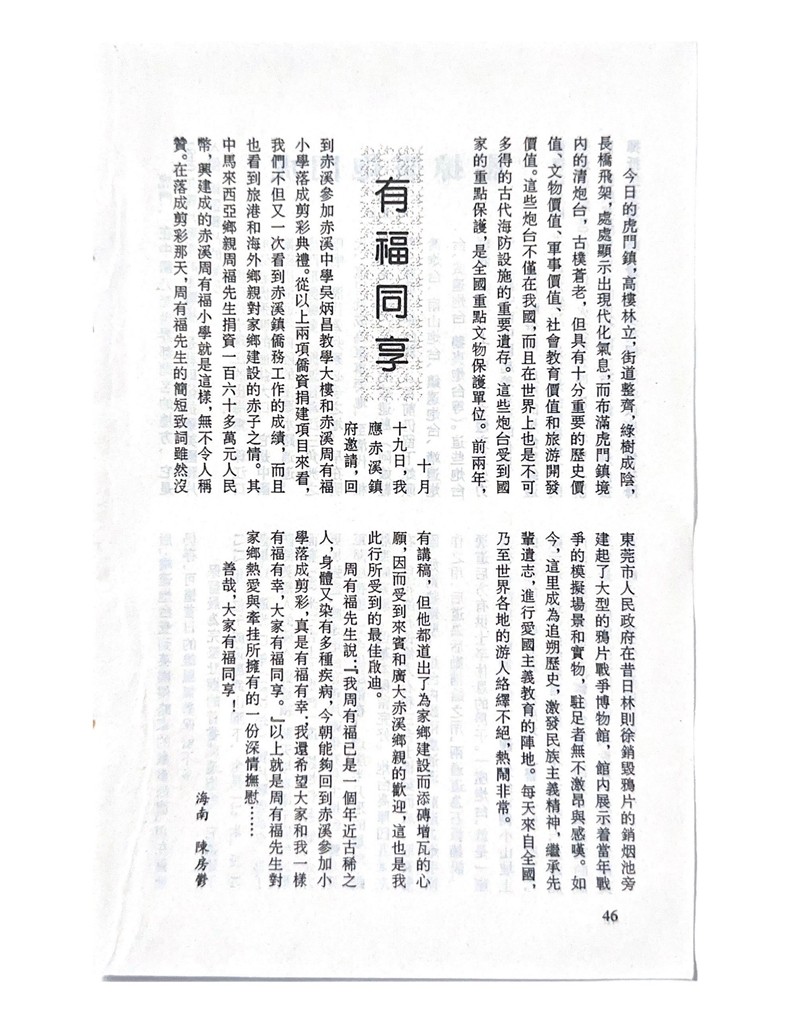 今日的虎門鎮,高樓林立,街道整齊,綠樹成陰,
長橋飛架,處處顯示出現代化氣息,而布滿虎門鎮境
內的清炮台,古樸蒼老,但具有十分重要的歷史價
值、文物價值、軍事價值、社會教育價值和旅游開發
價值。這些炮台不僅在我國,而且在世界上也是不可
多得的古代海防設施的重要遺存。這些炮台受到國
家的重點保護,是全國重點文物保護單位。前兩年,
東莞市人民政府在昔日林則徐銷毀鴉片的銷烟池旁
建起了大型的鴉片戰爭博物館,館內展示着當年戰
爭的模擬場景和實物,駐足者無不激昂與感嘆。如
今,這里成為追朔歷史,激發民族主義精神,繼承先
輩遺志,進行愛國主義教育的陣地。每天來自全國,
乃至世界各地的游人絡繹不絕,熱鬧非常。
有福同享
十月
十九日,我
應赤溪鎮
府邀請,回
到赤溪參加赤溪中學吳炳昌教學大樓和赤溪周有福
小學落成剪彩典禮。從以上兩項僑資捐建項目來看,
我們不但又一次看到赤溪鎮僑務工作的成績,而且
也看到旅港和海外鄉親對家鄉建設的赤子之情。其
中馬來西亞鄉親周福先生捐資一百六十多萬元人民
幣,興建成的赤溪周有福小學就是這樣,無不令人稱
贊。在落成剪彩那天,周有福先生的簡短致詞雖然沒
有講稿,但他都道出了為家鄉建設而添磚增瓦的心
願,因而受到來賓和廣大赤溪鄉親的歡迎,這也是我
此行所受到的最佳啟迪。
周有福先生說:『我周有福已是一個年近古稀之
人,身體又染有多種疾病,今朝能夠回到赤溪參加小
學落成剪彩,真是有福有幸:我還希望大家和我一樣
有福有幸,大家有福同享。』以上就是周有福先生對
家鄉熱愛與牽挂所擁有的一份深情撫慰……
善哉,大家有福同享!
海南 陳房鬱
46